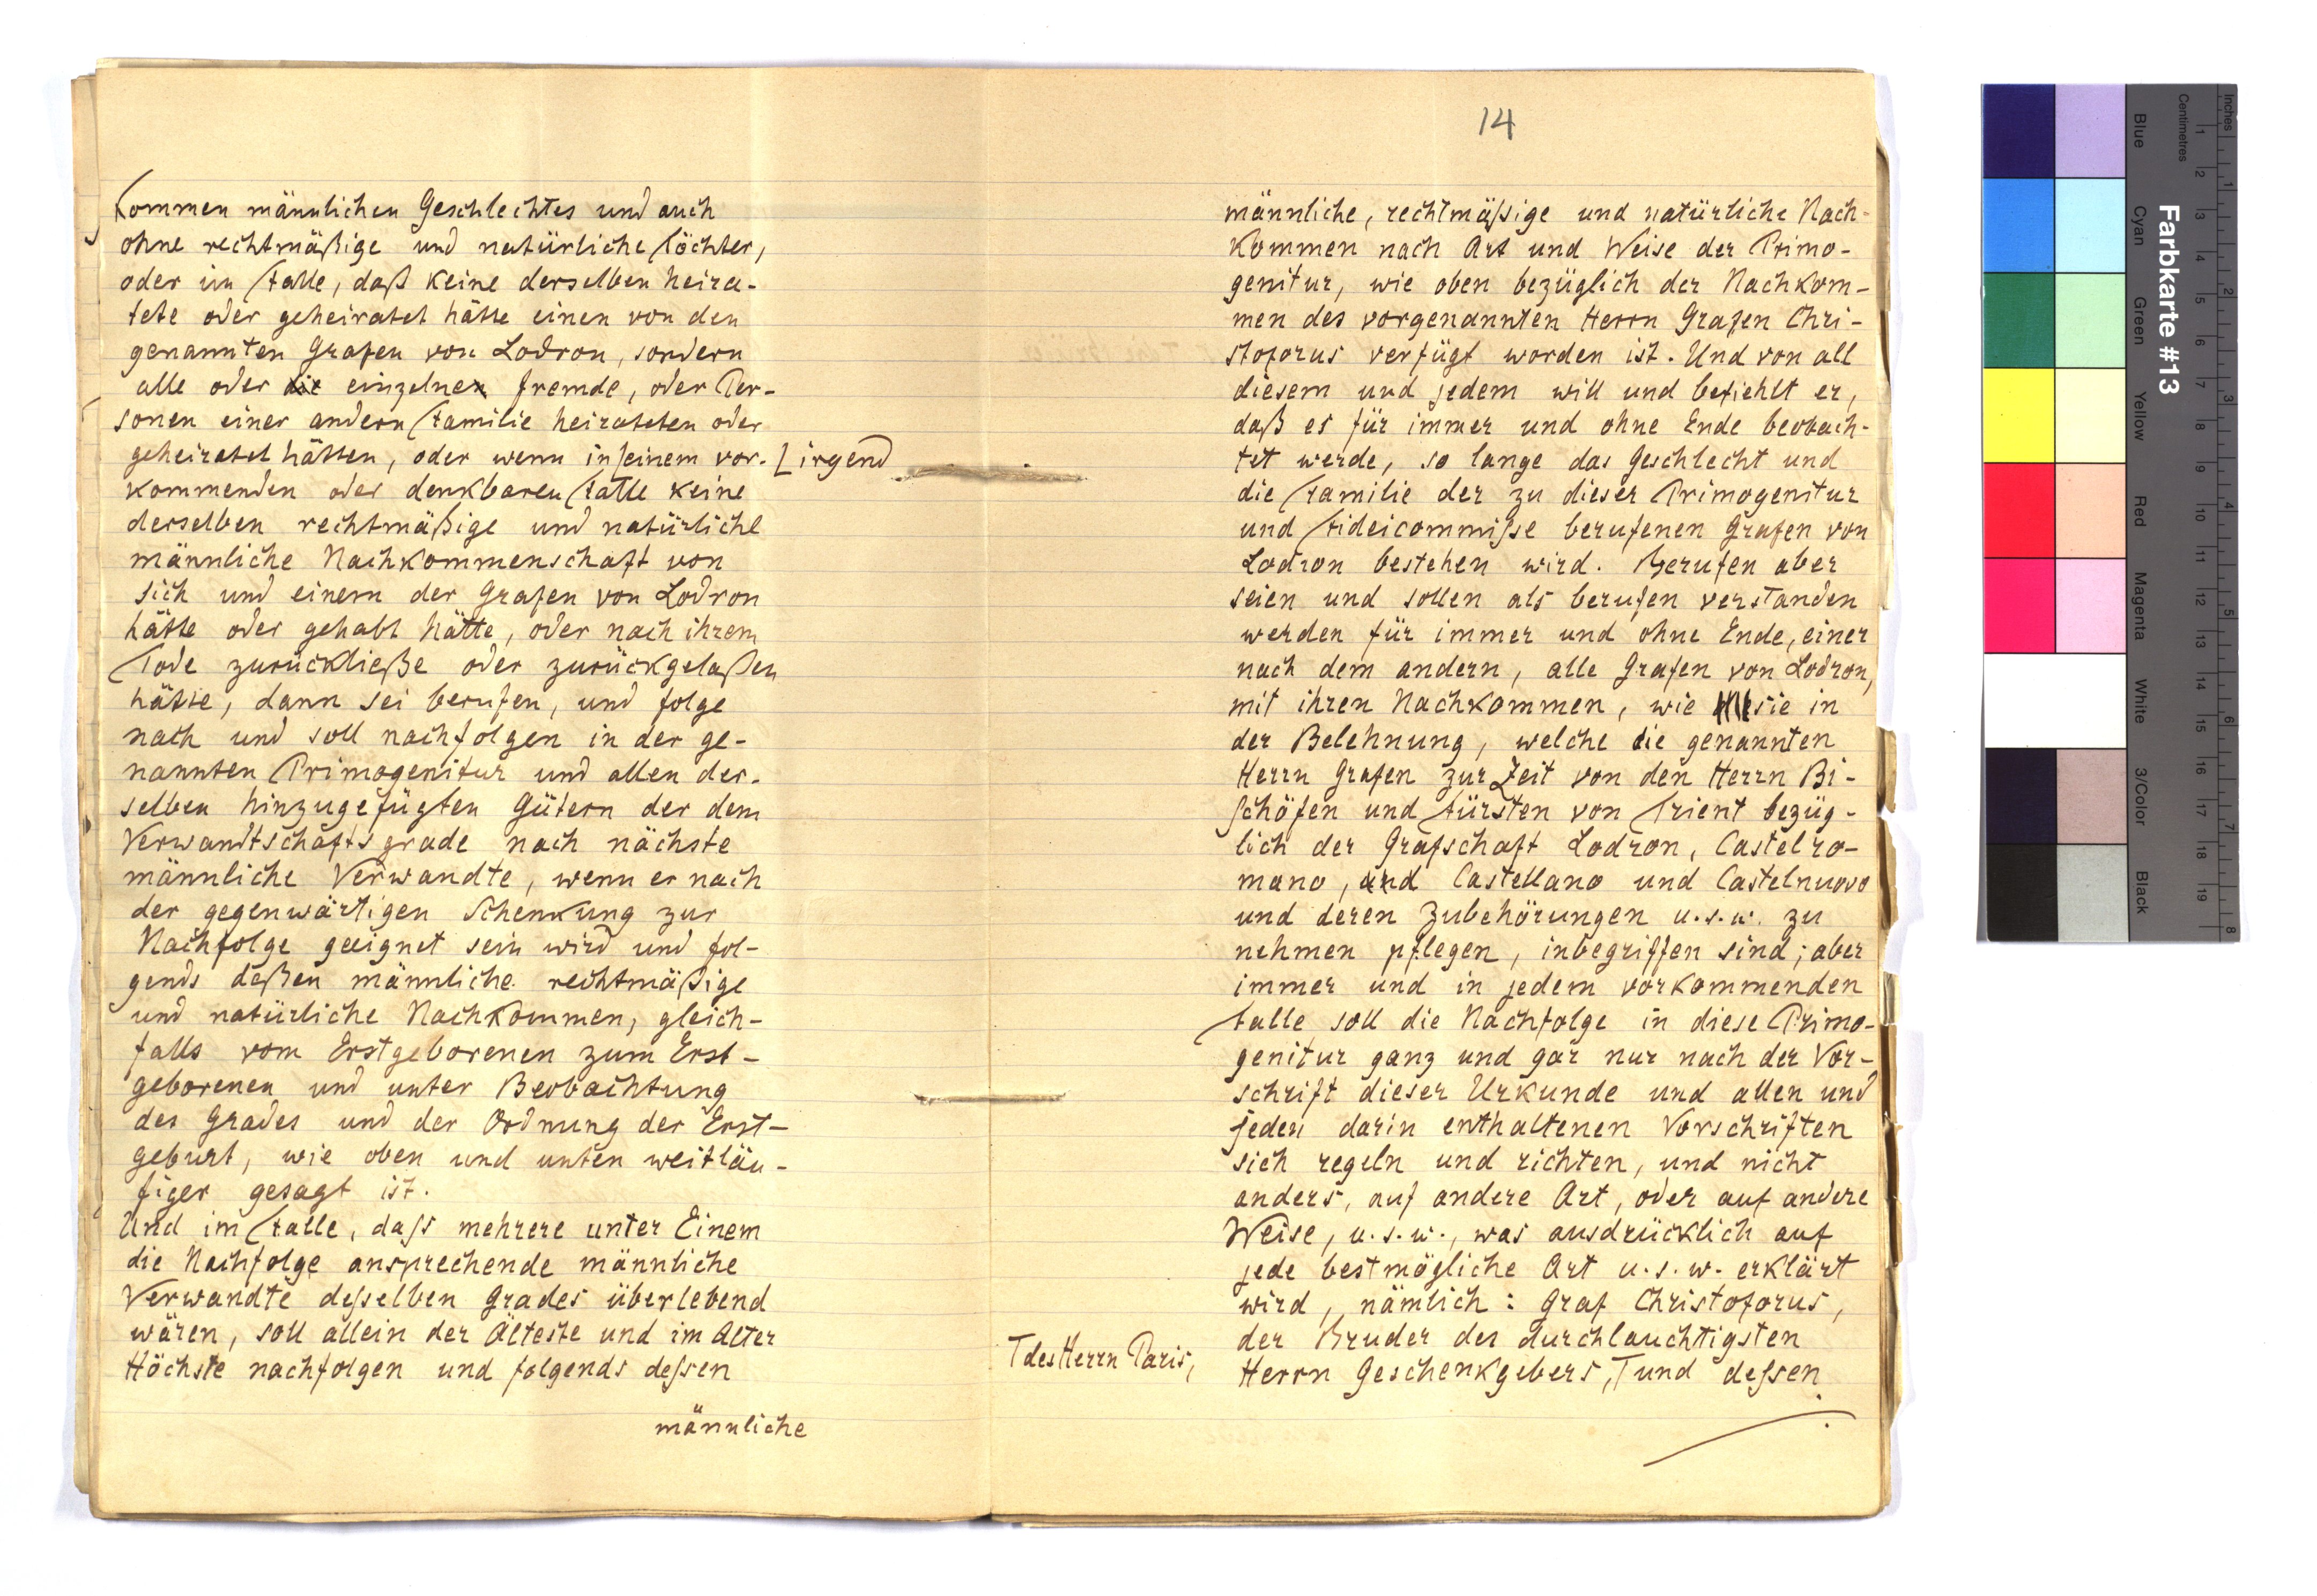 kommen männlichen Geschlechtes und auch
ohne rechtmäßige und natürliche Töchter,
oder im Falle, daß keine derselben heira-
tete oder geheiratet hätte einen von den
genannten Grafen von Lodron, sondern
alle oder die einzelnen fremde, oder Per-
sonen einer andern Familie heirateten oder
geheiratet hätten, oder wenn in seinem vor- [ irgend
kommenden oder denkbaren Falle keine
derselben rechtmäßige und natürliche
männliche Nachkommenschaft von
sich und einem der Grafen von Lodron
hätte oder gehabt hätte, oder nach ihrem
Tode zurückließe oder zurückgelaßen
hätte, dann sei berufen, und folge
nach und soll nachfolgen in der ge-
nannten Primogenitur und allen der-
selben hinzugefügten Gütern der dem
Verwandtschaftsgrade nach nächste
männliche Verwandte, wenn er nach
der gegenwärtigen Schenkung zur
Nachfolge geeignet sein wird und fol-
gends deßen männliche rechtmäßige
und natürliche Nachkommen, gleich-
falls vom Erstgeborenen zum Erst-
geborenen und unter Beobachtung
des Grades und der Ordnung der Erst-
geburt, wie oben und unten weitläu-
figer gesagt ist.
Und im Falle, dass mehrere unter Einem
die Nachfolge ansprechende männliche
Verwandte desselben Grades überlebend
wären, soll allein der Älteste und im Alter
Höchste nachfolgen und folgends dessen
männliche
14
männliche, rechtmässige und natürliche Nach-
kommen nach Art und Weise der Primo-
genitur, wie oben bezüglich der Nachkom-
men des vorgenannten Herrn Grafen Chri-
stoforus verfügt worden ist. Und von all
diesem und jedem will und befiehlt er,
daß es für immer und ohne Ende beobach-
tet werde, so lange das Geschlecht und
die Familie der zu dieser Primogenitur
und Fideicommisse berufenen Grafen von
Lodron bestehen wird. Berufen aber
seien und sollen als berufen verstanden
werden für immer und ohne Ende, einer
nach dem andern, alle Grafen von Lodron,
mit ihren Nachkommen, wie sie in
der Belehnung, welche die genannten
Herrn Grafen zur Zeit von den Herrn Bi-
schöfen und Fürsten von Trient bezüg-
lich der Grafschaft Lodron, Castelro-
mano, und Castellano und Castelnuovo
und deren Zubehörungen u.s.w. zu
nehmen pflegen, inbegriffen sind; aber
immer und in jedem vorkommenden
Falle soll die Nachfolge in diese Primo-
genitur ganz und gar nur nach der Vor-
schrift dieser Urkunde und allen und
jeden darin enthaltenen Vorschriften
sich regeln und richten, und nicht
anders, auf andere Art, oder auf andere
Weise, u.s.w., was ausdrücklich auf
jede bestmögliche Art u.s.w. erklärt
wird, nämlich: Graf Christoforus,
der Bruder des durchlauchtigsten
T des Herrn Paris,
Herrn Geschenkgebers, T und dessen
Farbkarte #13
Inches 1 2 3 4 5 6 7 8
Centimetres 1 2 3 4 5 6 7 8 9 10 11 12 13 14 15 16 17 18 19
Blue Cyan Green Yellow Red Magenta White 3/Color Black